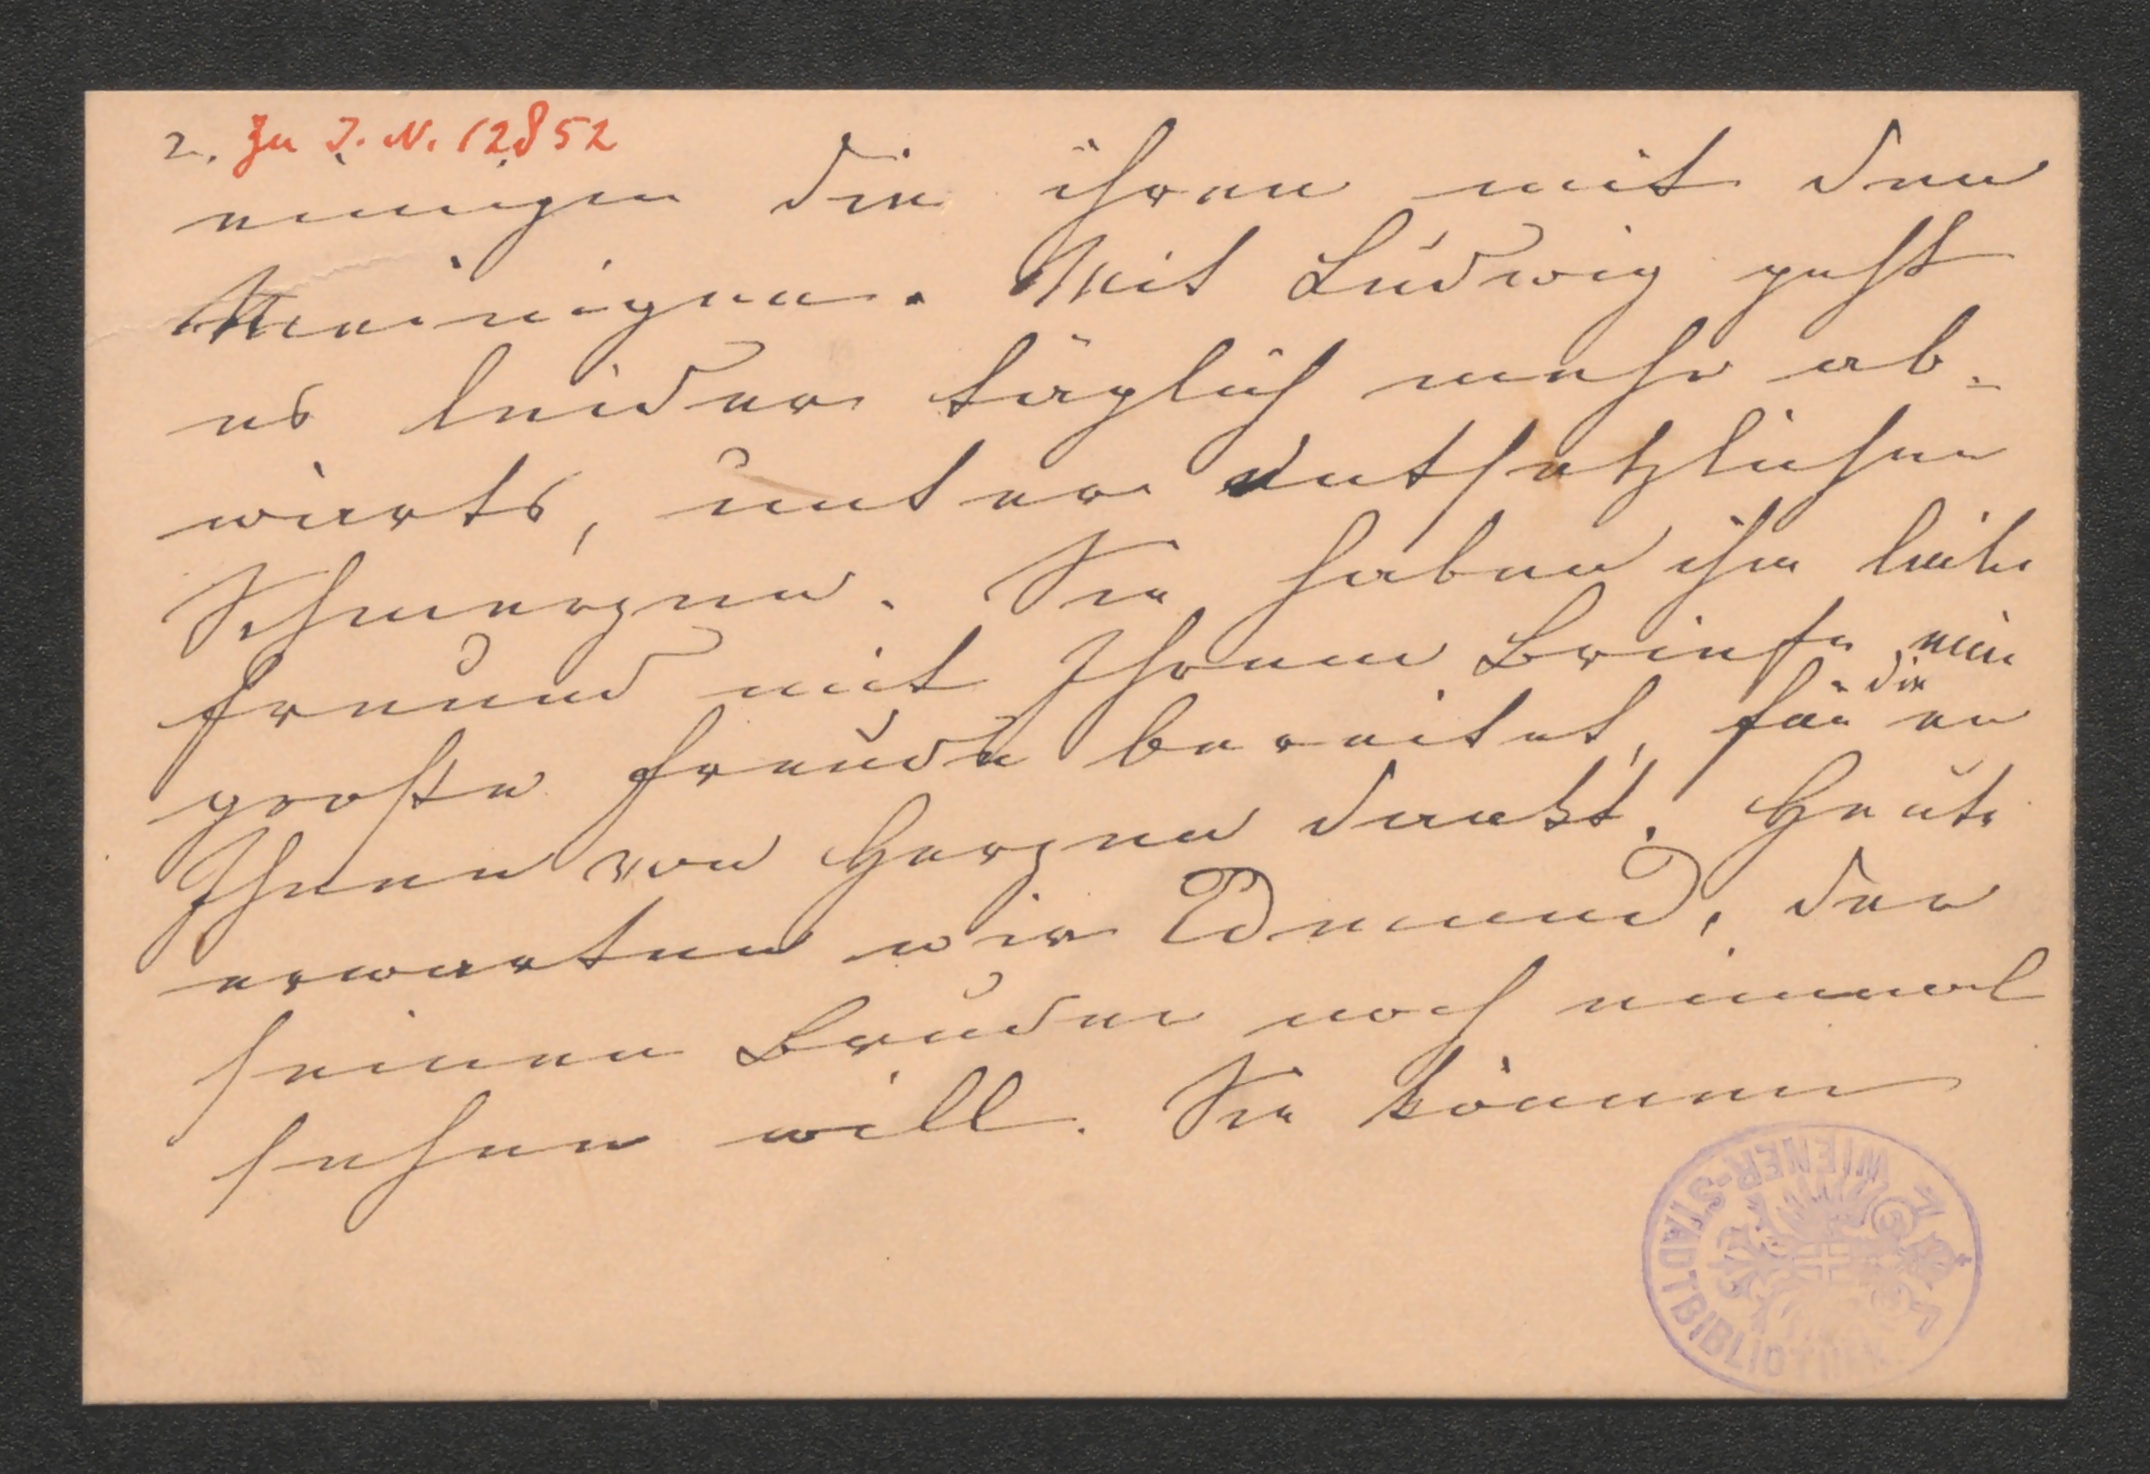 2. Zu J. N. 12852
einigen die ihren mit den
Meinigen. Mit Ludwig geht
es leider täglich mehr ab-
wärts, unter entsetzlichen
Schmerzen. Sie haben ihm lieber
Freund mit Ihrem Briefe eine
große Freude bereitet, für die er
Ihnen von Herzen dankt. Heute
erwarten wir Edmund, der
seinen Bruder noch einmal
sehen will. Sie können
WIENER-STADTBIBLIOTHEK